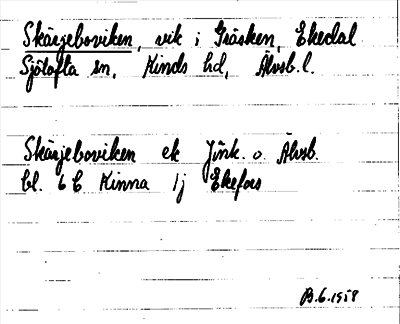 Skärjeboviken, vik i Gräsken, Ekedal
Sjötofta sn, Kinds hd, Älvsb. l.
Skärjeboviken ek Jönk. o. Älvsb.
bl. 6 C Kinna 1j Ekefors
B. 6. 1958